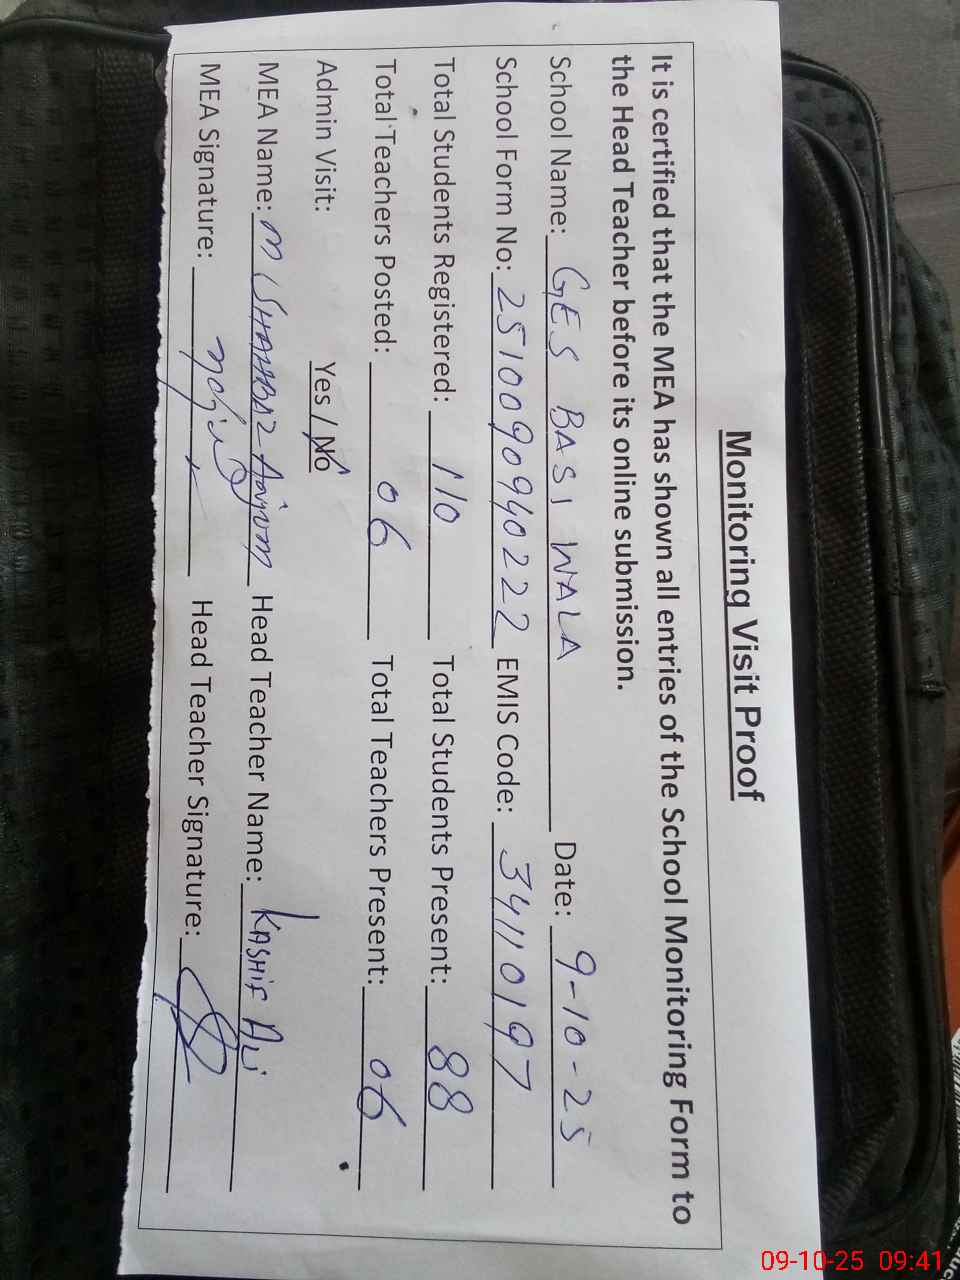 Monitoring Visit Proof
It is certified that the MEA has shown all entries of the School Monitoring Form to
the Head Teacher before its online submission.
School Name: GES BASI WALA Date: 9-10-25
School Form No: 2510090940222 EMIS Code: 34110197
Total Students Registered: 110 Total Students Present: 88
Total Teachers Posted: 06 Total Teachers Present: 06
Admin Visit: Yes / No
MEA Name: M SHAHBAZ Anjum Head Teacher Name: KASHIF ALi
MEA Signature: Head Teacher Signature:
09-10-25 09:41